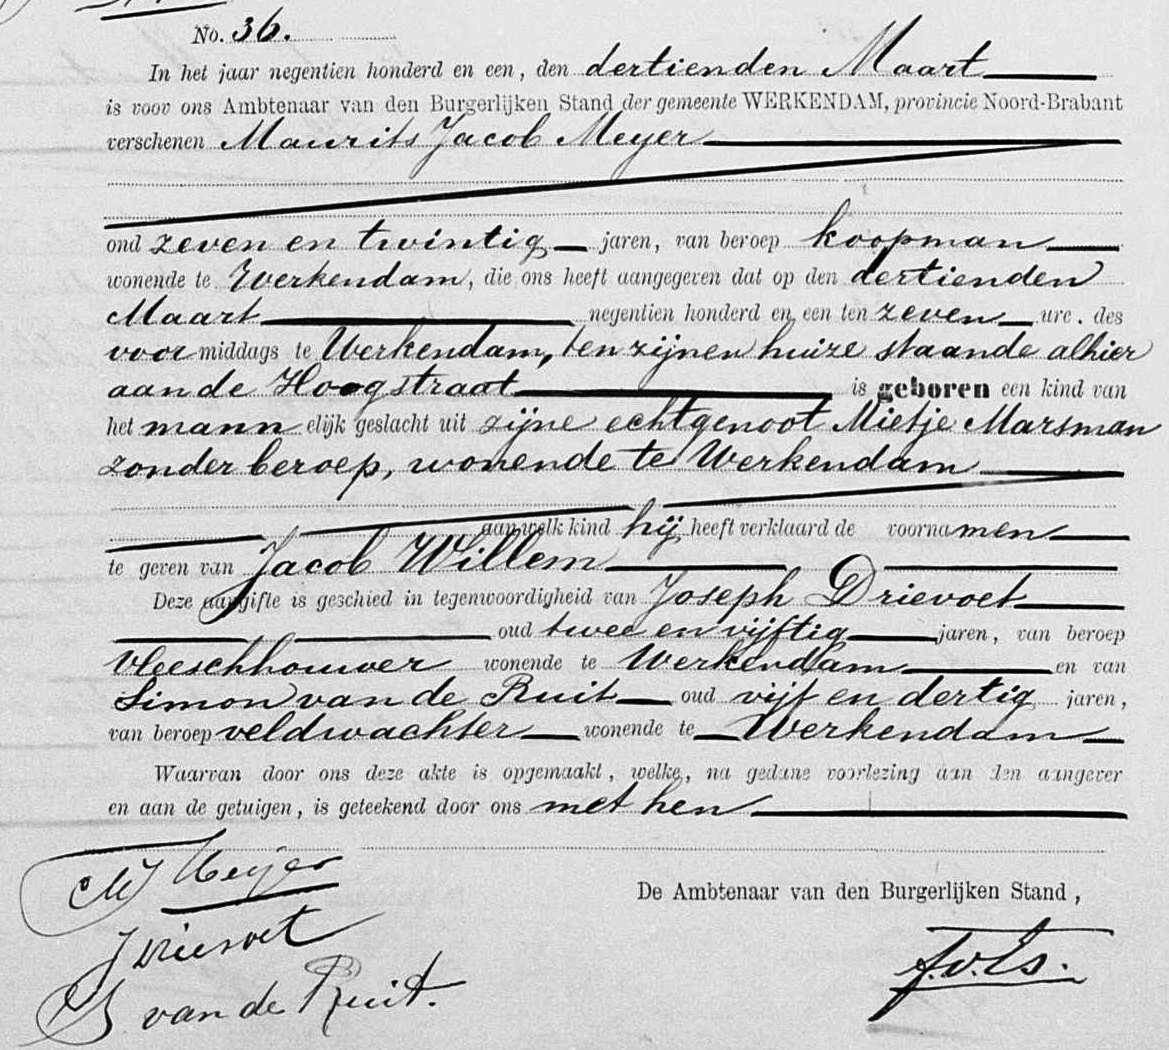 No. 36.
In het jaar negentien honderd en een, den dertienden Maart
is voor ons Ambtenaar van den Burgerlijken Stand der gemeente WERKENDAM, provincie Noord-Brabant
verschenen Maurits Jacob Meyer
oud zeven en twintig jaren, van beroep koopman
wonende te Werkendam, die ons heeft aangegeven dat op den dertienden
Maart negentien honderd en een ten zeven ure. des
voormiddags te Werkendam, ten zijnen huize staande alhier
aan de Hoogstraat is geboren een kind van
het mannelijk geslacht uit zijne echtgenoot Mietje Marsman
zonder beroep, wonende te Werkendam
aan welk kind hij heeft verklaard de voornamen
te geven van Jacob Willem
Deze aangifte is geschied in tegenwoordigheid van Joseph Drievoet
oud twee en vijftig jaren, van beroep
vleeschhouwer wonende te Werkendam en van
Simon van de Ruit oud vijf en dertig jaren,
van beroep veldwachter wonende te Werkendam
Waarvan door ons deze akte is opgemaakt, welke, na gedane voorlezing aan den aangever
en aan de getuigen, is geteekend door ons met hen
MJ Meijer
De Ambtenaar van den Burgerlijken Stand,
J Drievoet
S van de Ruit.